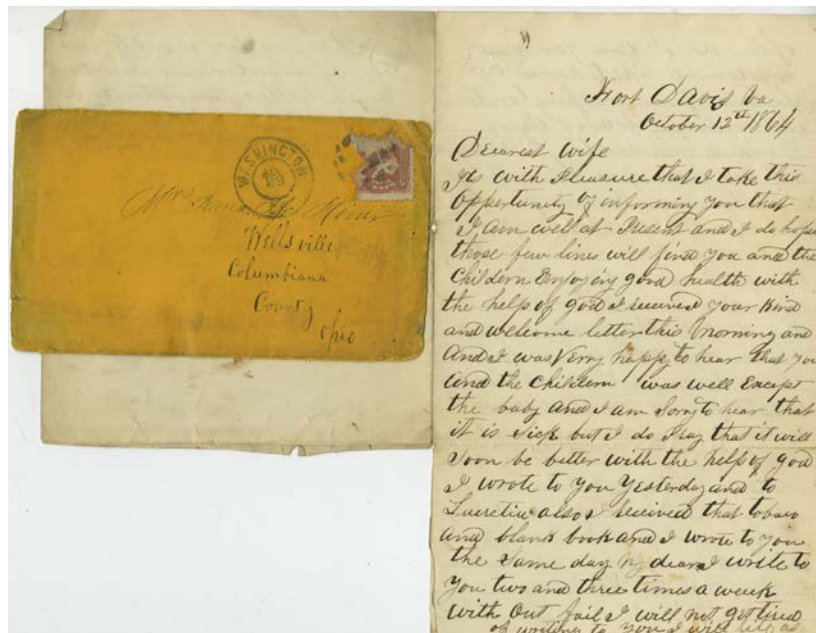 WASHINGTON
Mrs
Wellsville
Columbiana
County
Ohio
Fort Davis Va
October 12th 1864
Dearest wife
It is with Pleasure that I take this
opportunity of informing you that
I am well at Present and I do hope
those few lines will find you and the
Childern Enjoying good health with
the help of god I received your Kind
and welcome letter this morning and
And I was Verry happy to hear that you
and the childern was well Except
the baby and I am Sorry to hear that
it is sick but I do Pray that it will
Soon be better with the help of god
I wrote to you Yesterday and to
Lucretia also I received that tobaco
and blank book and I wrote to you
the Same day My dear I write to
You two and three times a week
with Out fail I will not get tired
of writing to you I will